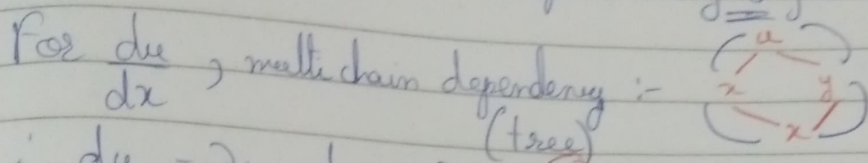 For du/dx, multi chain dependency :-
(tree)
u
x y
x